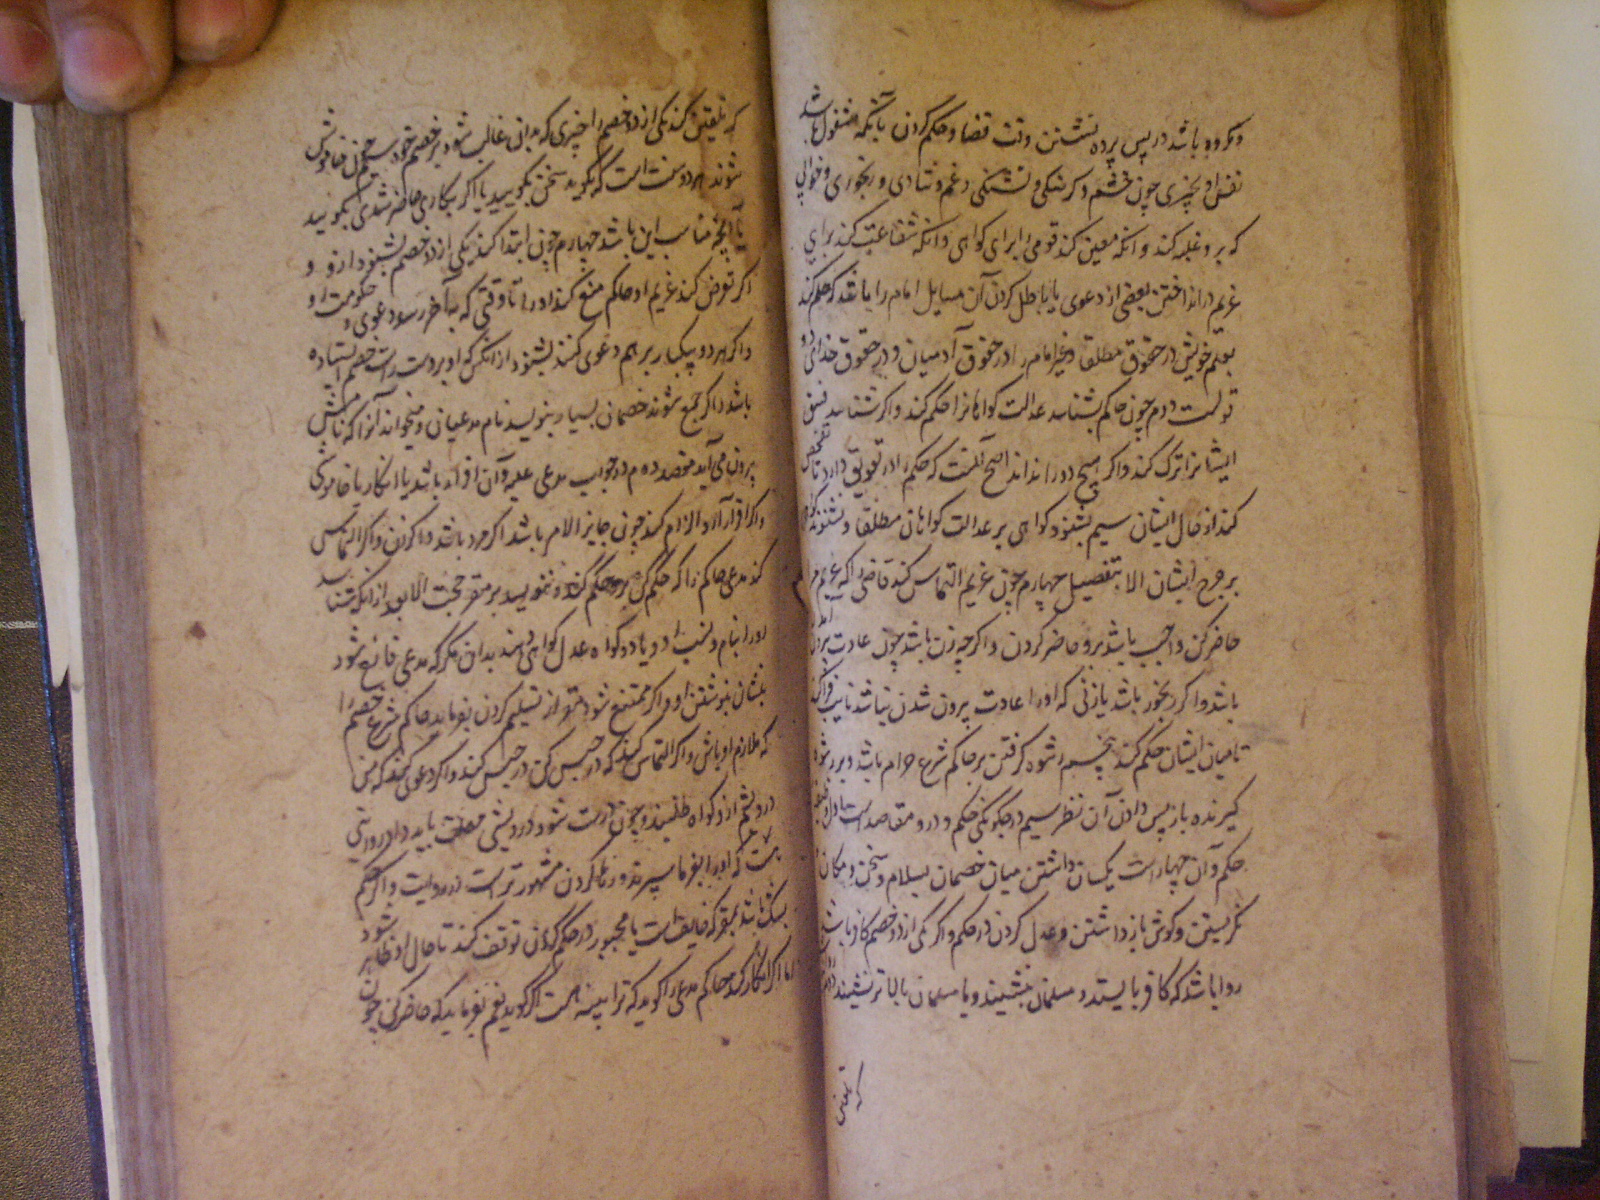 و مکروه باشد در پس پرده نشستن وقت قضا و حکم کردن با آنکه مشغول باشد
نفس او بچیزی چون خشم و کرسنکی و تشنکی و غم و شادی و رنجوری و خوابی
که برو غلبه کند و انکه معین کند قومی را برای کواهی و انکه شفاعت کند برای
غریم در انداختن بعضی از دعوی یا باطل کردن آن مسایل امام را باشد که حکم کند
بعلم خویش در حقوق مطلقا و غیر امام را در حقوق آدمیان و در حقوق خدای دو
قولست دوم چون حاکم بشناسد عدالت کواهانرا حکم کند و اکر شناسد فسق
ایشانرا ترک کند و اکر هیچ دو را نداند اصح آنست که حکم را در تعویق دارد تا تفحص
کند از حال ایشان سیم بشنود کواهی بر عدالت کواهان مطلقا و نشنوند کواهی
بر جرح ایشان الا بتفصیل چهارم چون غریم التماس کند قاضی را که غریم
حاضر کن واجب باشد برو حاضر کردن و اکر چه زن باشد چون عادت بیرون آمدن
باشد و اکر رنجور باشد یا زنی که او را عادت بیرون شدن نباشد نایب فرا کند
تا میان ایشان حکم کند پنجم رشوه کرفتن بر حاکم شرع حرام باشد و بر رشوه
کیرنده باز پس دادن آن نظر سیم در چکونکی حکم و درو مقاصد است اول وظیفه
حکم و آن چهار است یکسان داشتن میان خصمان بسلام و سخن و مکان و
نکریستن و کوش باز داشتن و عدل کردن در حکم و اکر یکی از دو خصم کافر باشد
روا باشد که کافر بایستد و مسلمان بنشیند و یا مسلمان بالاتر نشیند دوم
که تلقین
که تلقین کند یکی از دو خصم را چیزی که بدان غالب شود بر خصم خود سیم چون خاموش
شوند هر دو سنت است که بکوید سخن بکویید یا اکر بکاری حاضر شدی بکویید
یا آنچه مناسب این باشد چهارم چون ابتدا کند یکی از دو خصم بشنود ازو و
اکر تعرض کند غریم او حاکم منع کند او را تا وقتی که بآخر رسد دعوی و حکومت او
و اکر هر دو بیکبار بر هم دعوی کنند بشنود از انکس که او بر دست راست خصم ایستاده
باشد و اکر جمع شوند خصمان بسیار بنویسد نام مدعیان و میخواند آنرا که نامش
بیرون می آید مقصد دوم در جواب مدعی علیه و آن اقرار باشد یا انکار یا خاموشی
و اکر اقرار آرد الزام کند چون جایز الامر باشد اکر مرد باشد و اکر زن و اکر التماس
کند مدعی حاکم را که حکم کن برو حکم کند و ننویسد بر مقر حجت الا بعد از انکه شناسد
او را بنام و نسب او و یا دو کواه عدل کواهی دهند بدان مکر که مدعی قانع شود
بنشان نبوشتن او و اکر ممتنع شود مقر از تسلیم کردن بفرماید حاکم شرع خصم را
که ملازم او باش و اکر التماس کند که در حبس کن در حبس کند و اکر دعوی کند که من
درویشم ازو کواه طلبند و چون درست شود درویشی مهلت باید داد و روایتی
هست که او را بغرما سپرند و رها کردن مشهورتر است از روایت و اکر حکم
بشک باشد بمقر که خایفست یا مجبور در حکم کردن توقف کند تا حال او ظاهر شود
اما اکر انکار کند حاکم مدعی را کوید که ترا بینه هست اکر کوید نعم بفرماید که حاضر کن چون